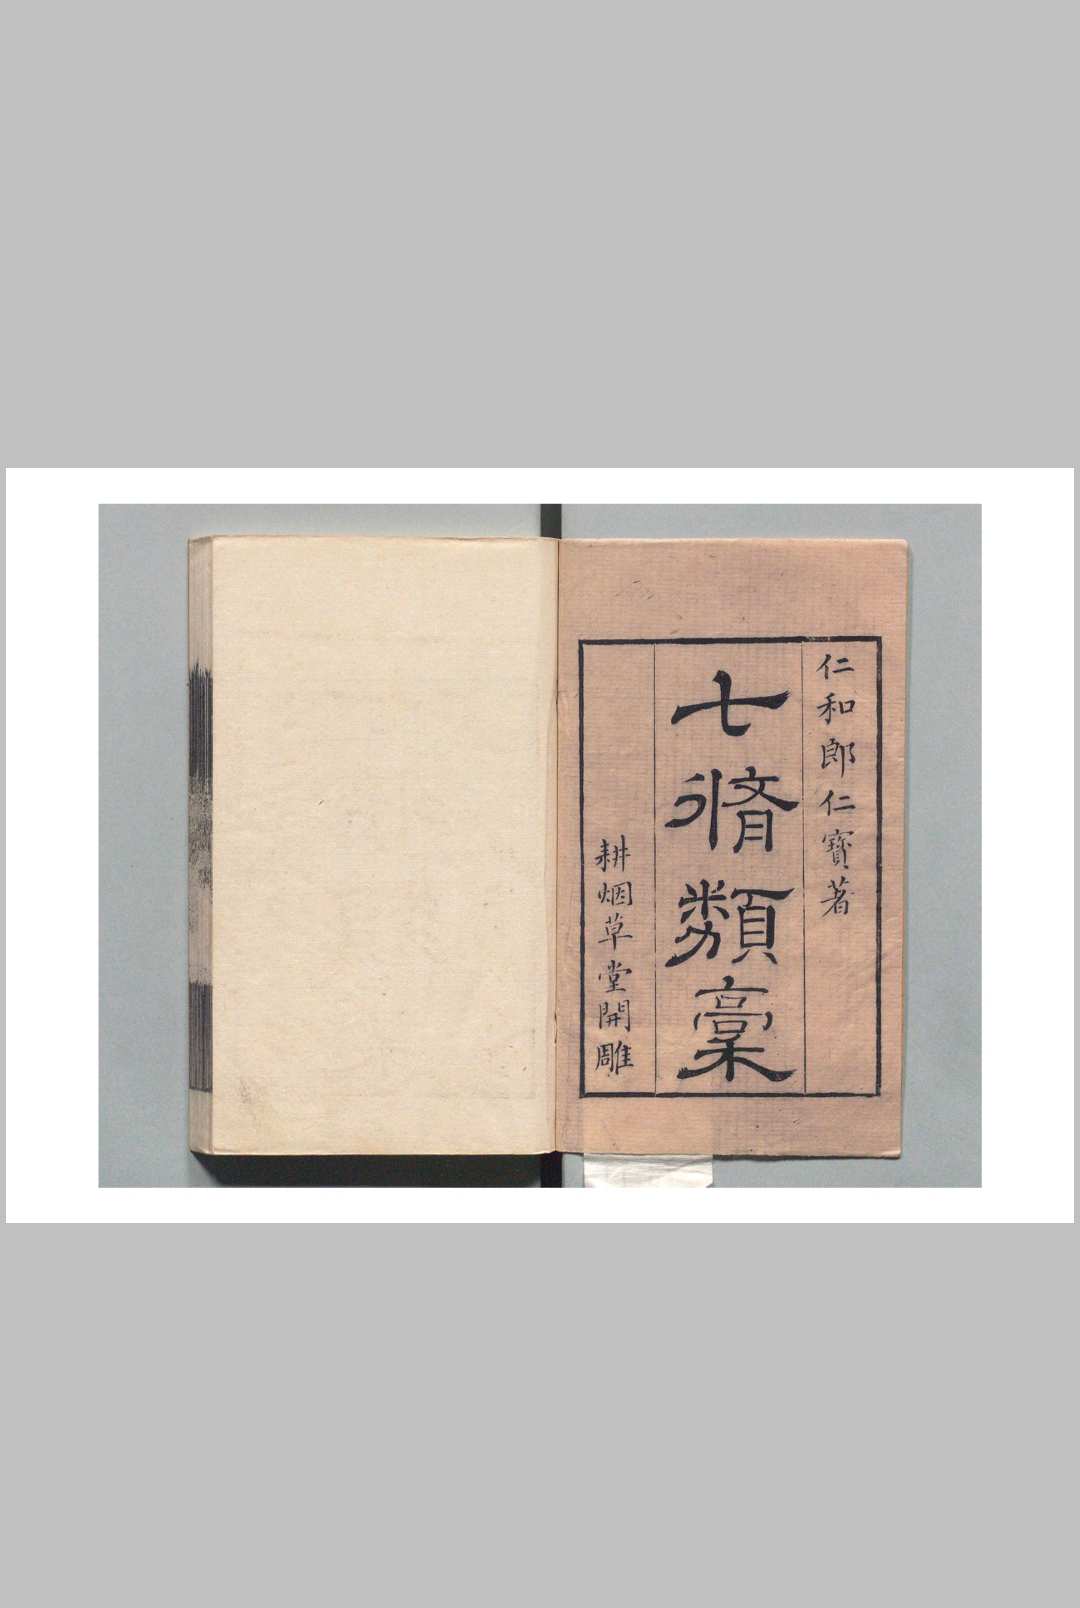 仁和郎仁寶著
七脩類稾
耕烟草堂開雕